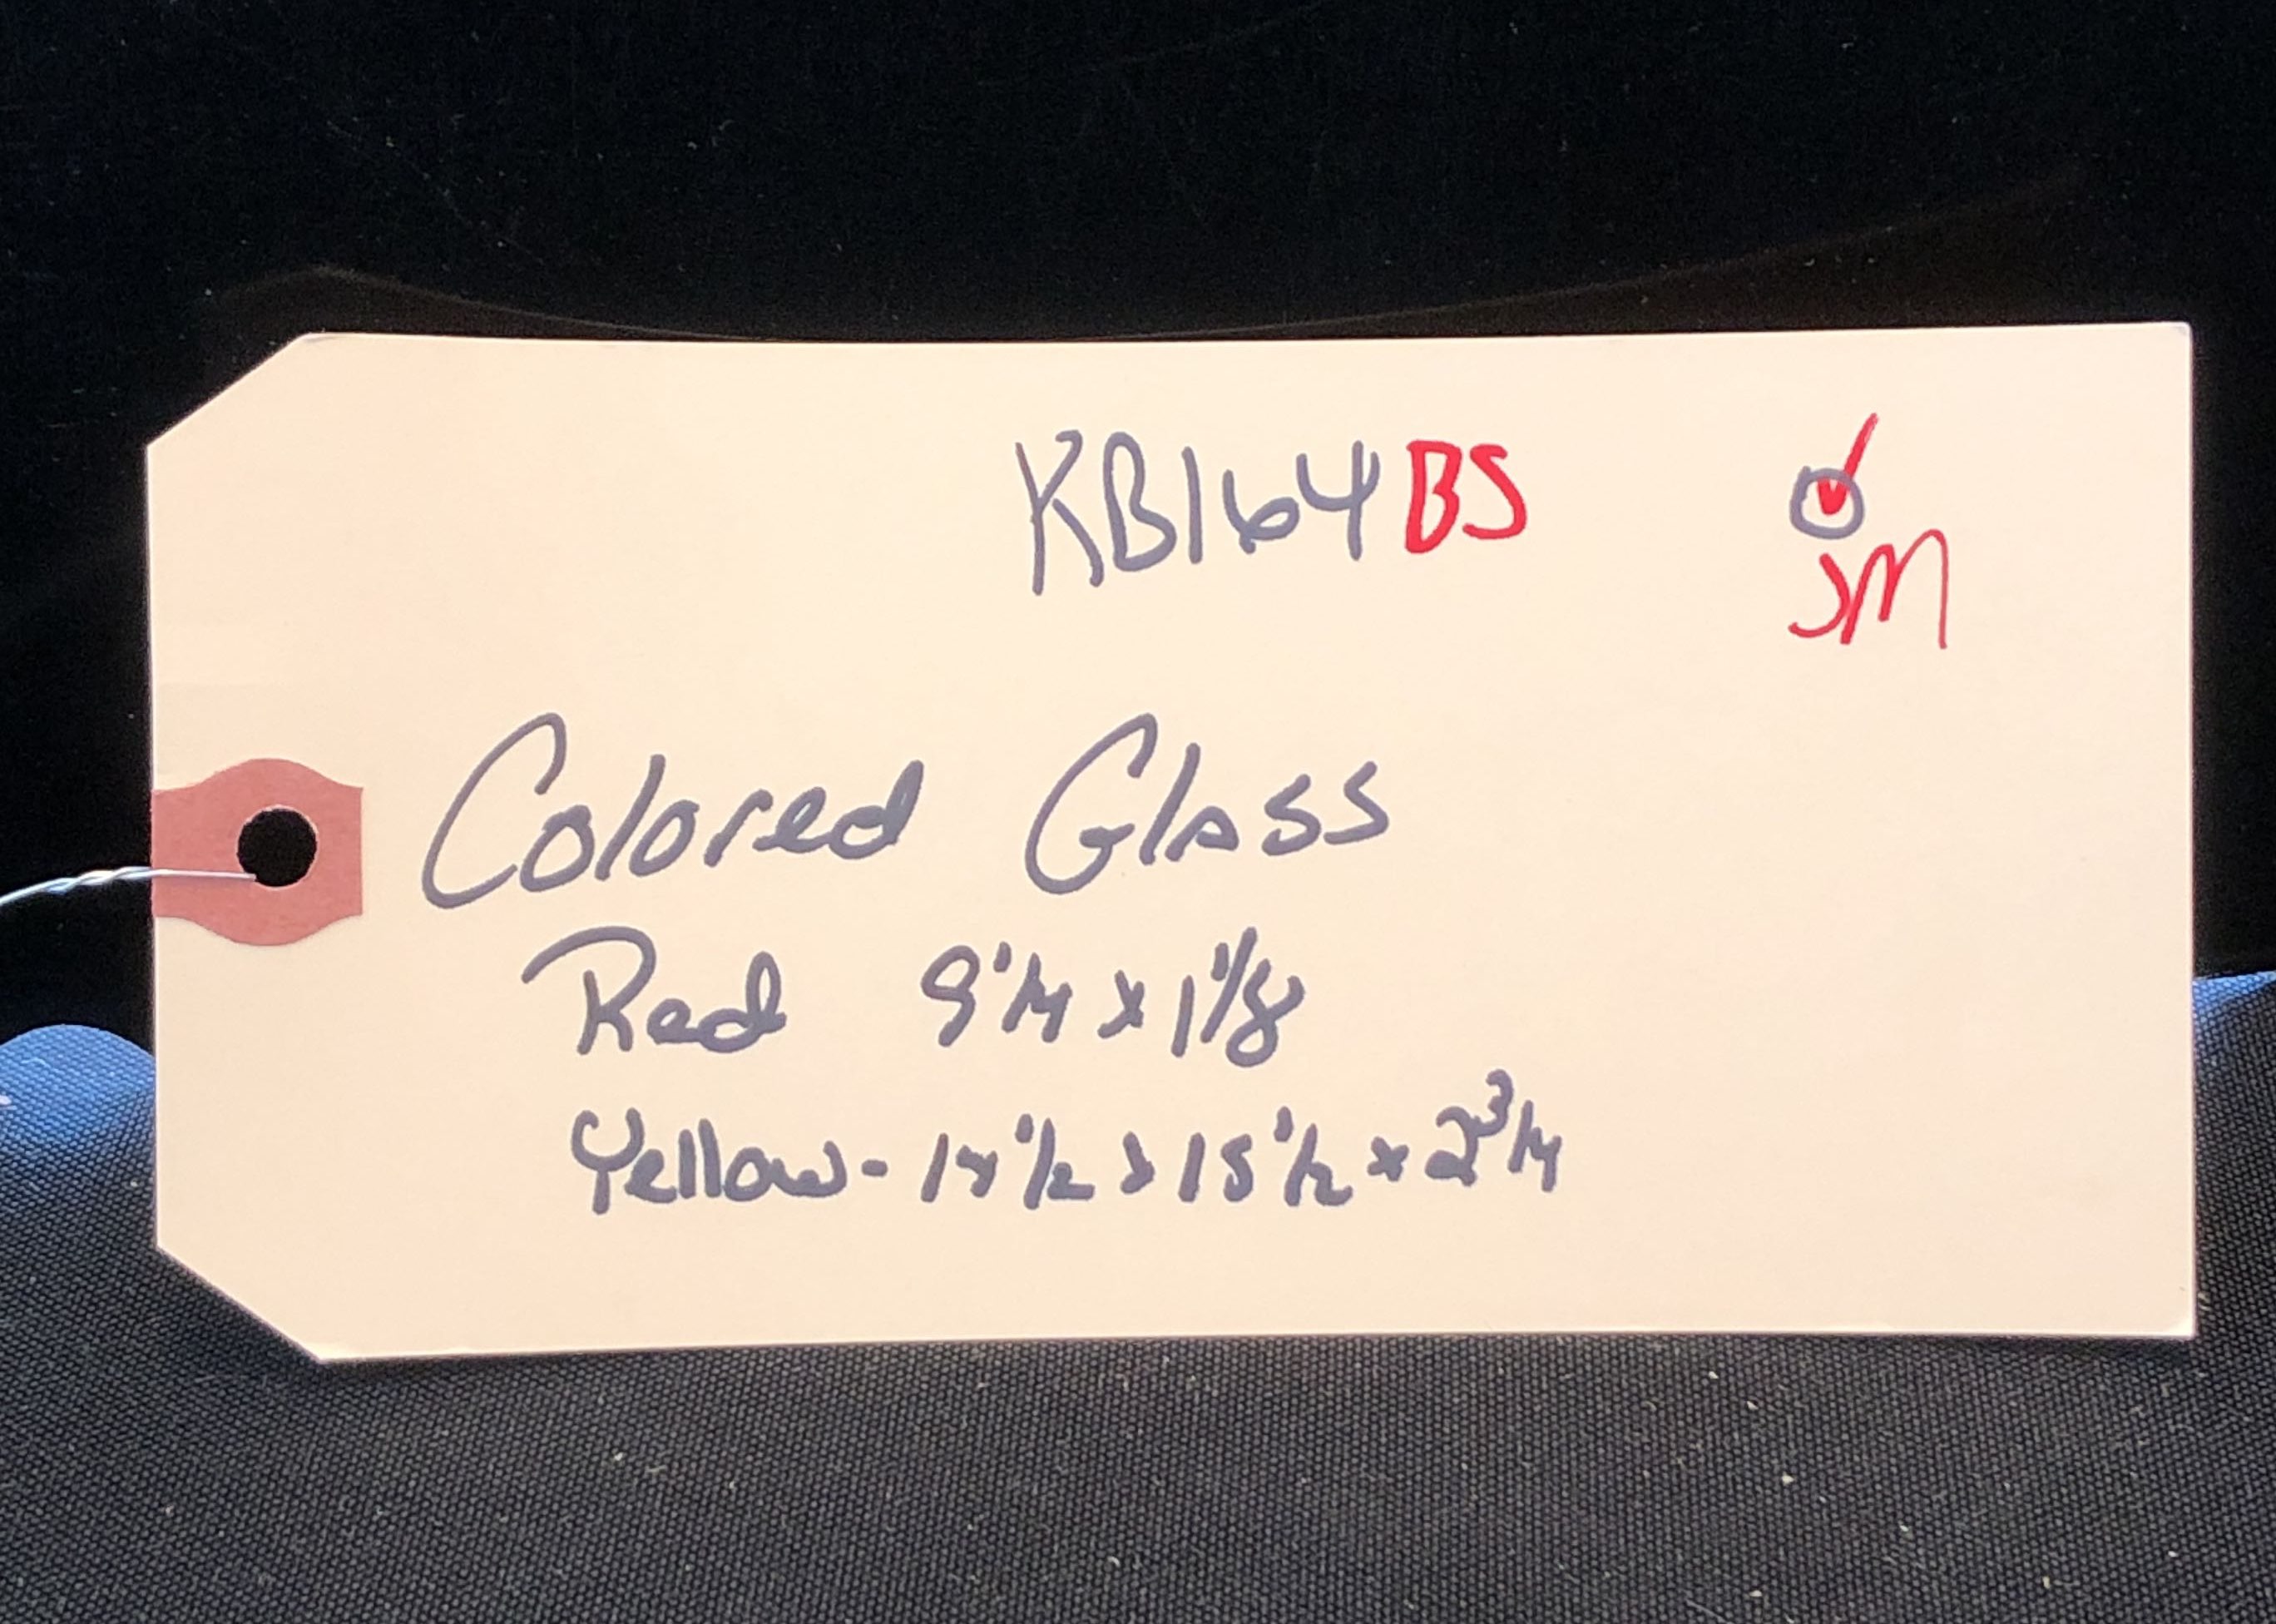 KB164BS
JM
Colored Glass
Red 9 1/4 x 1 1/8
Yellow - 14 1/2 x 15 1/2 x 2 3/4